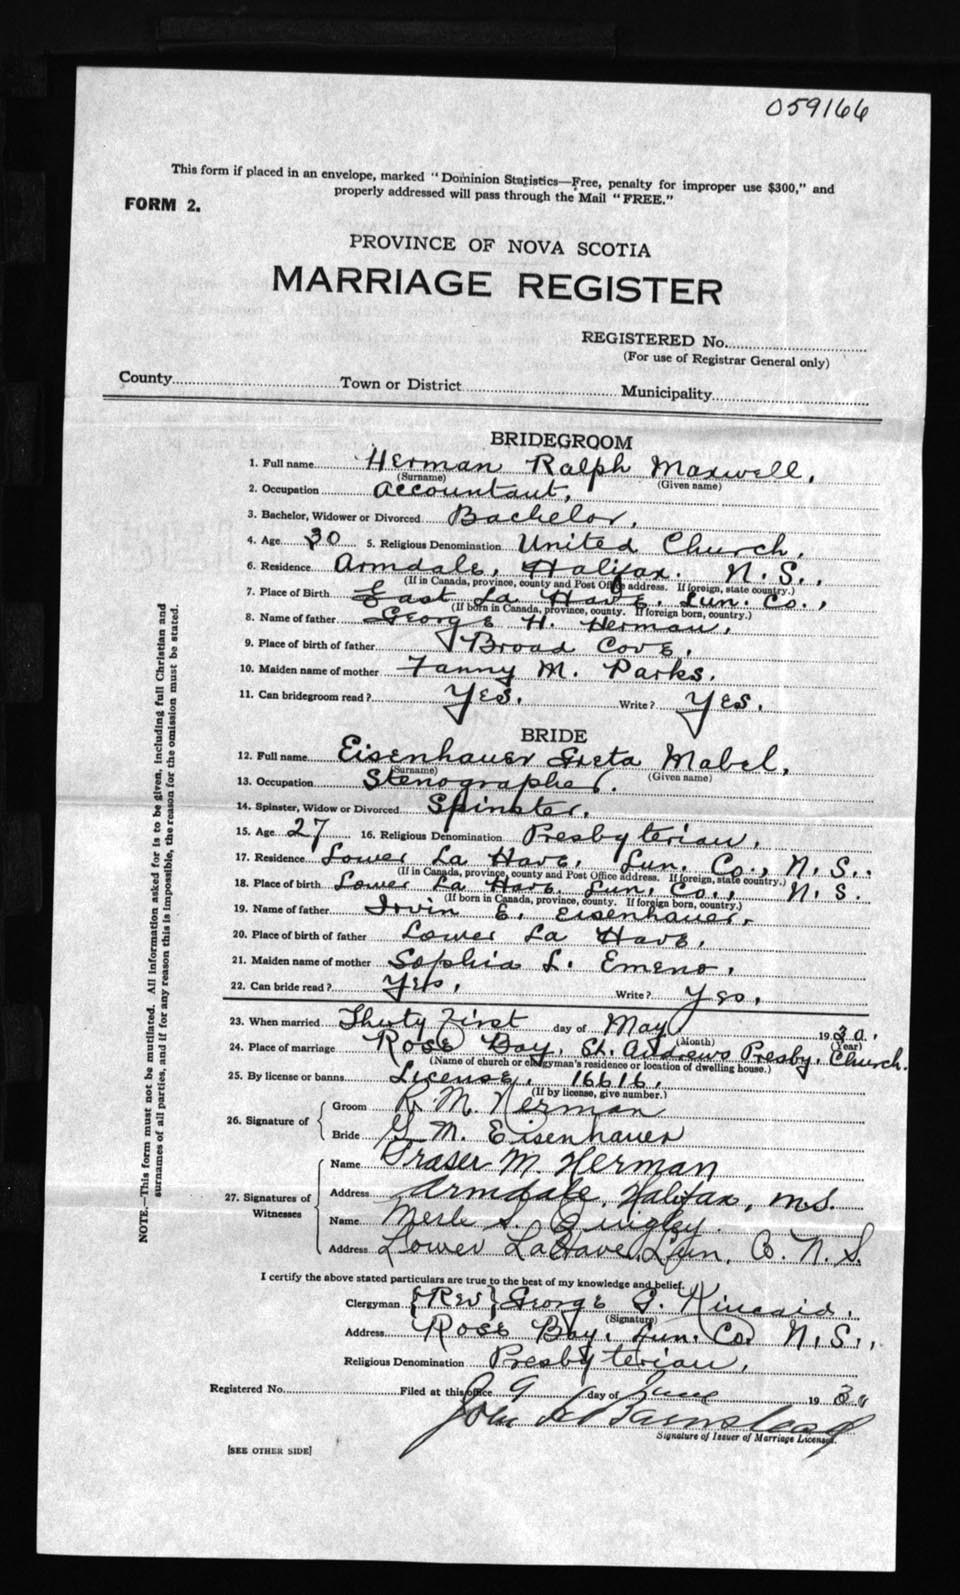 059166
This form if placed in an envelope, marked "Dominion Statistics—Free, penalty for improper use $300," and
properly addressed will pass through the Mail "FREE."
FORM 2.
PROVINCE OF NOVA SCOTIA
MARRIAGE REGISTER
REGISTERED No.
(For use of Registrar General only)
County Town or District Municipality
BRIDEGROOM
1. Full name Herman Ralph Maxwell,
(Surname) (Given name)
2. Occupation Accountant,
3. Bachelor, Widower or Divorced Bachelor,
4. Age 30 5. Religious Denomination United Church,
6. Residence Armdale, Halifax. N.S.,
(If in Canada, province, county and Post Office address. If foreign, state country.)
7. Place of Birth East La Have, Lun. Co.,
(If born in Canada, province, county. If foreign born, country.)
8. Name of father George H. Herman,
9. Place of birth of father Broad Cove,
10. Maiden name of mother Fanny M. Parks.
11. Can bridegroom read? Yes. Write? Yes.
BRIDE
12. Full name Eisenhauer Greta Mabel,
(Surname) (Given name)
13. Occupation Stenographer.
14. Spinster, Widow or Divorced Spinster,
15. Age 27 16. Religious Denomination Presbyterian,
17. Residence Lower La Have, Lun. Co., N.S..
(If in Canada, province, county and Post Office address. If foreign, state country.)
18. Place of birth Lower La Have. Lun. Co., N.S.
(If born in Canada, province, county. If foreign born, country.)
19. Name of father Irvin E. Eisenhauer,
20. Place of birth of father Lower La Have,
21. Maiden name of mother Sophia L. Emeno,
22. Can bride read? Yes, Write? Yes,
23. When married Thirty First day of May 1930.
(Month) (Year)
24. Place of marriage Rose Bay, St. Andrews Presby. Church.
(Name of church or clergyman's residence or location of dwelling house.)
25. By license or banns License, 16616,
(If by license, give number.)
26. Signature of Groom R. M. Herman
Bride G. M. Eisenhauer
27. Signatures of Witnesses Name Fraser M. Herman
Address Armdale, Halifax, N.S.
Name Merle S. Quigley.
Address Lower LaHave, Lun, Co. N.S.
I certify the above stated particulars are true to the best of my knowledge and belief.
Clergyman {Rev} George G. Kincaid,
(Signature)
Address Rose Bay, Lun. Co. N.S.,
Religious Denomination Presbyterian,
Registered No. Filed at this office 9 day of June 1930
John
Signature of Issuer of Marriage Licenses.
[SEE OTHER SIDE]
NOTE.—This form must not be mutilated. All information asked for is to be given, including full Christian and
surnames of all parties, and if for any reason this is impossible, the reason for the omission must be stated.